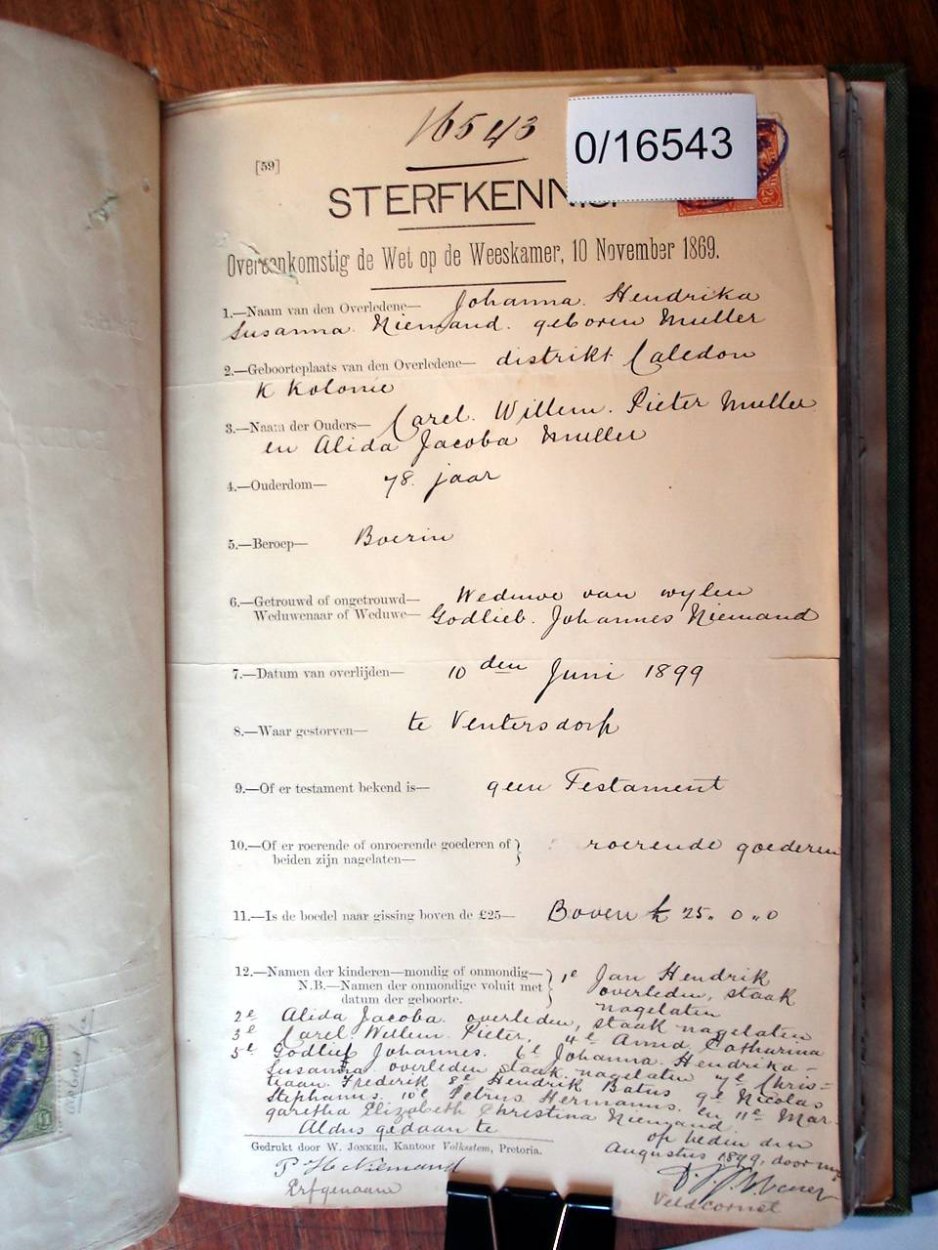 16543
0/16543
[59]
STERFKENNIS
Overeenkomstig de Wet op de Weeskamer, 10 November 1869.
1.—Naam van den Overledene— Johanna Hendrika
Susanna Niemand geboren Muller
2.—Geboorteplaats van den Overledene— distrikt Caledon
K Kolonie
3.—Naam der Ouders— Carel Willem Pieter Muller
en Alida Jacoba Muller
4.—Ouderdom— 78 jaar
5.—Beroep— Boerin
6.—Getrouwd of ongetrouwd— Weduwe van wylen
Weduwenaar of Weduwe— Godlieb Johannes Niemand
7.—Datum van overlijden— 10den Juni 1899
8.—Waar gestorven— te Ventersdorp
9.—Of er testament bekend is— geen Testament
10.—Of er roerende of onroerende goederen of } roerende goederen
beiden zijn nagelaten—
11.—Is de boedel naar gissing boven de £25— Boven £ 25.0.0
12.—Namen der kinderen—mondig of onmondig— } 1e Jan Hendrik
N.B.—Namen der onmondige voluit met overleden, staak
datum der geboorte. nagelaten
2e Alida Jacoba overleden, staak nagelaten
3e Carel Willem Pieter, 4e Anna Catharina
5e Godlief Johannes. 6e Johanna Hendrika
Susanna overleden staak nagelaten 7e Chris=
tiaan Frederik 8e Hendrik Batus 9e Nicolas
Stephanus 10e Petrus Hermanus en 11e Mar-
garetha Elizabeth Christina Niemand
Aldus gedaan te op heden den
Gedrukt door W. JONKER, Kantoor Volksstem, Pretoria. Augustus 1899, door mij
P H Niemand
Erfgenaam Veldcornet